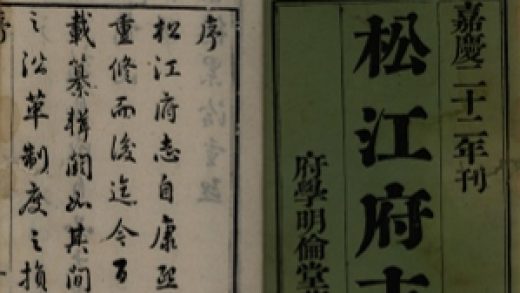 嘉慶二十二年刊
松江府志
府學明倫堂
序
松江府志自康熙
重修而後迄今百
載纂輯闕如其間
之沿革制度之損